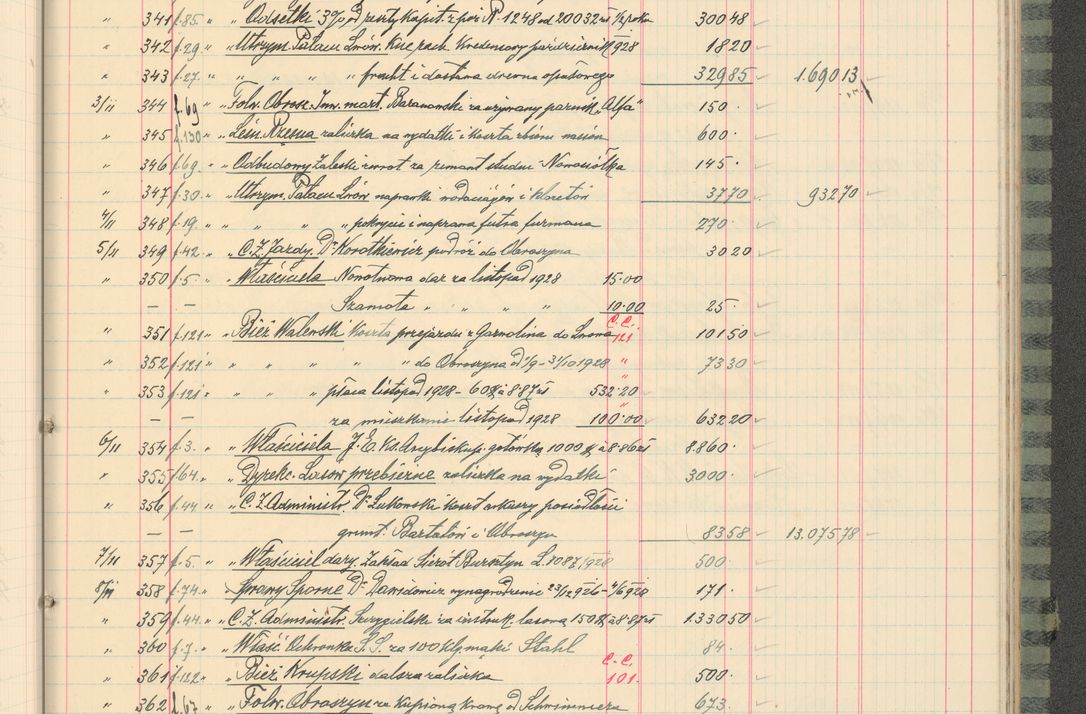 " 341 f. 85. " " Odsetki 3% od renty kapit. z poz. R. 1248 od 20032 zł ½ roka 30048
" 342 f. 29. " " Utrzym. Pałacu Lwów. Kuc rach. Kredensowy październik 1928 1820
" 343 f. 27. " " " " " " fracht i dostawa drewna opałowego 32985 1.69013
3/II 344 f. 69 " " Folw. Obrosz. Inw. mart. Baranowski za używany parnik "Alfa" 150.
" 345 f. 130 " " Leśn. Rzęsna zaliczka na wydatki i koszta zbioru nasion 600.
" 346 f. 69. " " Odbudowy Zaleski zwrot za remont studni Nowosiółka 145.
" 347 f. 30. " " Utrzym. Pałacu Lwów naprawki wodociągów i klozetów 3770 93270
4/II 348 f. 19. " " " " " pokrycie i naprawa futra furmana 270.
5/II 349 f. 42. " " C. Z. Zardy. Dr Korotkiewicz podróż do Obroszyna 3020
" 350 f. 5. " " Właściciela Nowotnowa dar za listopad 1928 15.00
— — Szamota " " " " 10.00 25.
" 351 f. 121 " " Bież Walewski koszta przejazdu z Garwolina do Lwowa C. C. 121 10150
" 352 f. 121 " " " " " " do Obroszyna od 1/9 - 31/10 1928 " 7330
" 353 f. 121 " " " " płaca listopad 1928 - 60 $ à 8.87 zł 532.20
— — za mieszkanie listopad 1928 100.00 63220
6/II 354 f. 3. " " Właściciela J. E. Ks. Arcybiskup. gotówką 1000 $ à 8.86 zł 8.860.
" 355 f. 64. " " Dyrekc. Lasów przebieżne zaliczka na wydatki 3000.
" 356 f. 44 " " C. Z. Administr. Dr Łukowski koszt arkuszy posiadłości
— — grunt. Bartatów i Obroszyn 8358 13.07578
7/II 357 f. 5. " " Właściciel dary. Zakład Sierot Bursztyn L. 1087/1928 500.
8/II 358 f. 74. " " Sprawy Sporne Dr Dawidowicz wynagrodzenie 23/12 1926 - 4/6 1928 171.
" 359 f. 44. " " C. Z. Administr. Szczygielski za instruk. lasową 150 $ à 8.87 zł 1.33050
" 360 f. 7. " " Właść. Ochronka S. S. za 100 klg mąki Stahl 84.
" 361 f. 122 " " Bież Krupski dalsza zaliczka C. C. 101. 500.
" 362 f. 67 " " Folw. Obroszyn za kupioną krowę od Schwimmera 673.